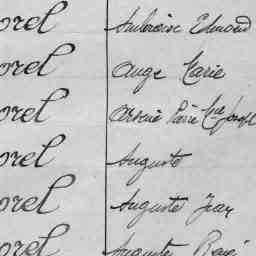 orel Ambroise Edmond
orel Ange Marie
orel Arsène Pierre Mie Joseph
orel Auguste
orel Auguste Jean
orel Auguste René